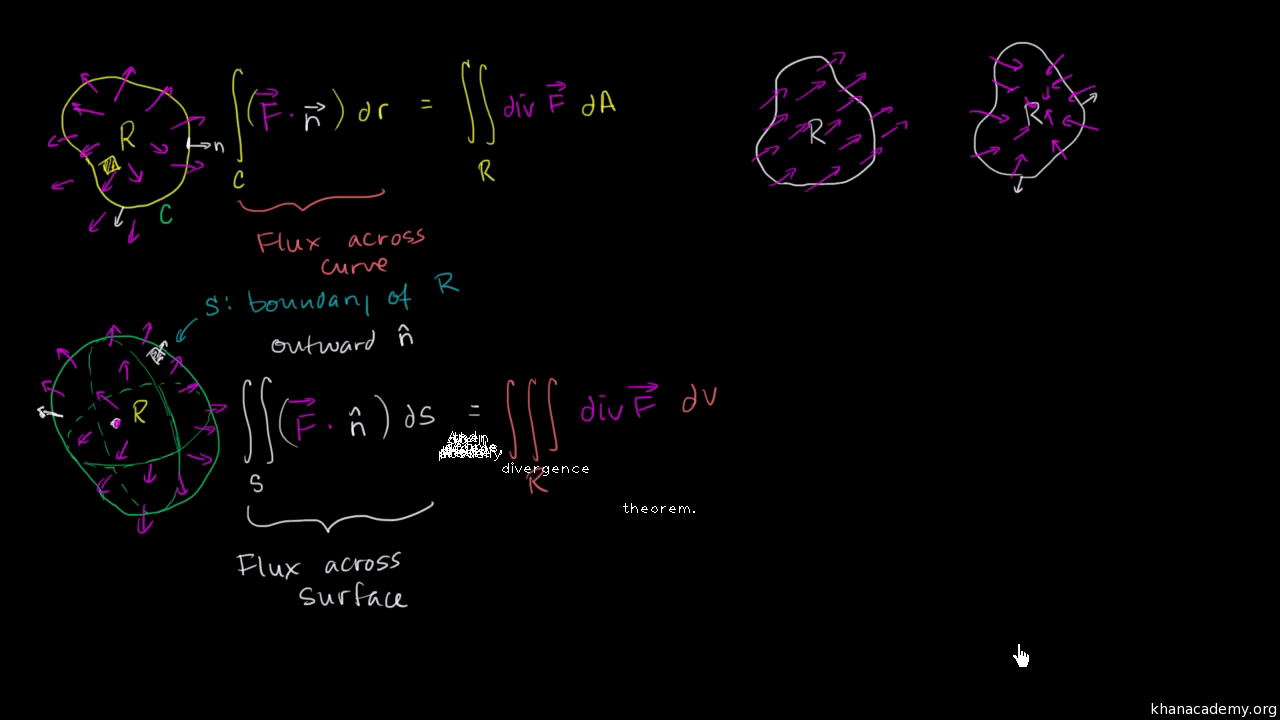 R
n
C
∫_C (F⃗ · n⃗) dr = ∬_R div F⃗ dA
R
R
Flux across
curve
S: boundary of R
outward n̂
R
∬_S (F⃗ · n̂) dS = ∭_R div F⃗ dV
divergence
theorem.
Flux across
surface
khanacademy.org